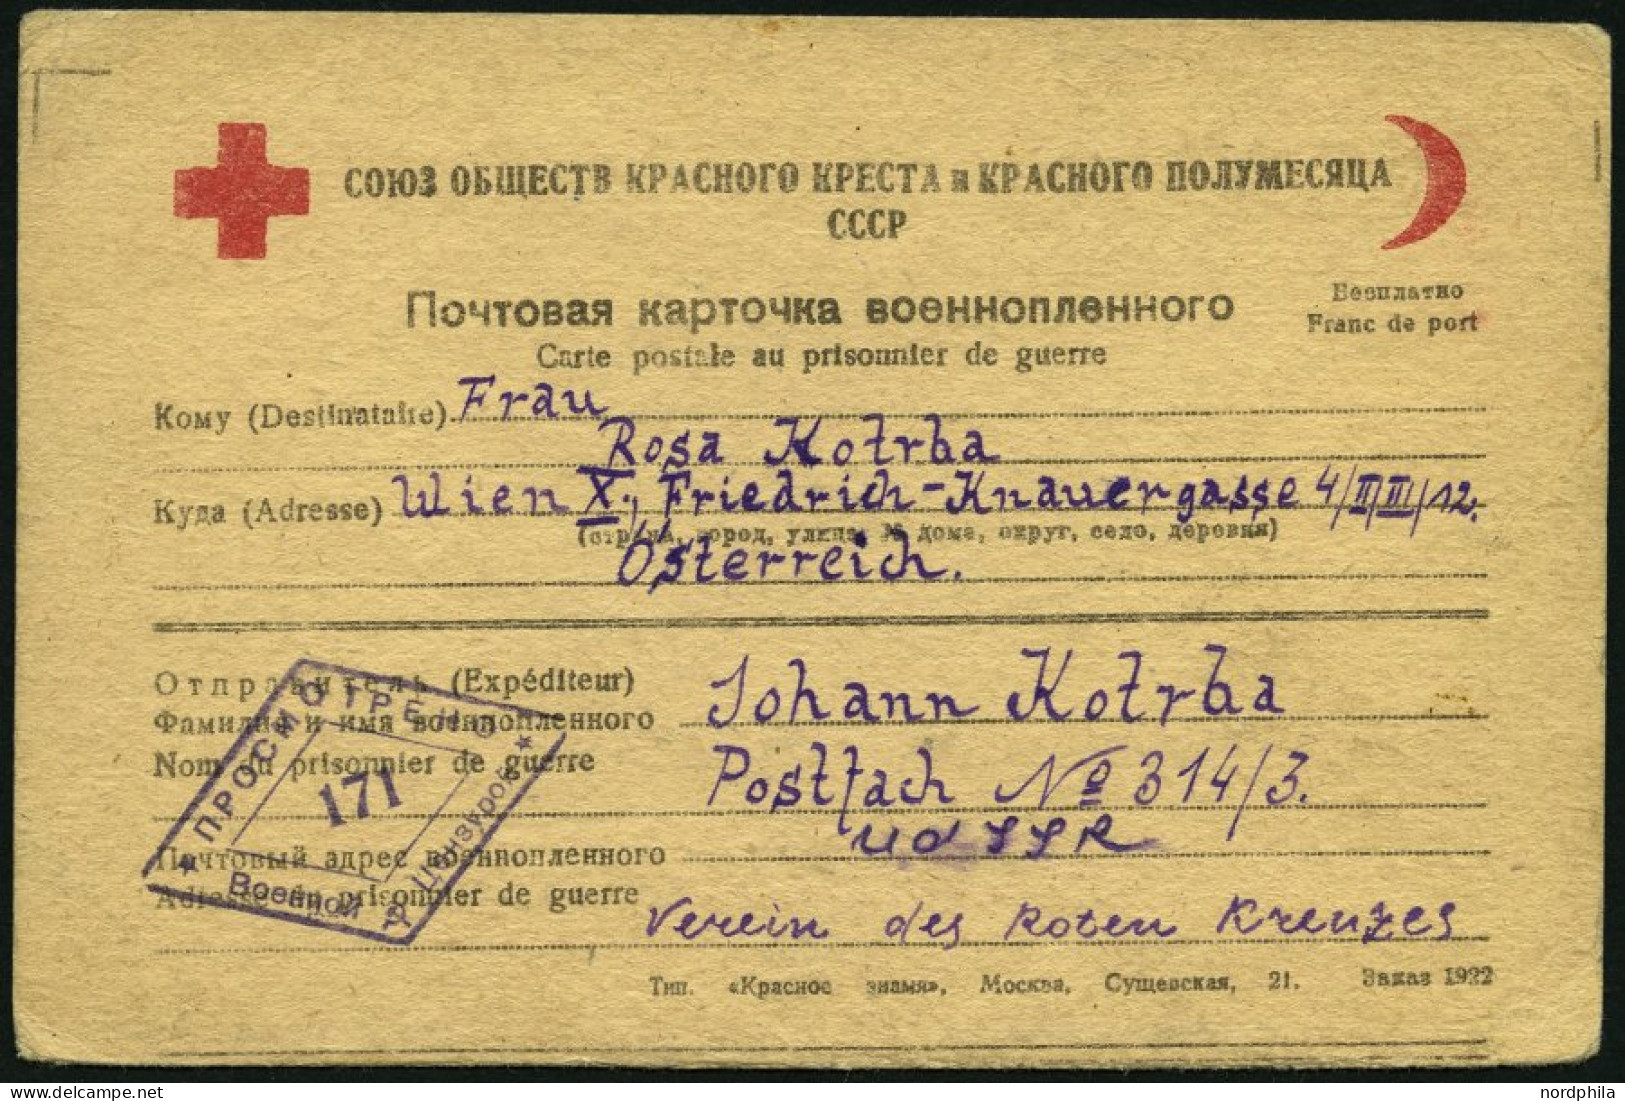 СОЮЗ ОБЩЕСТВ КРАСНОГО КРЕСТА и КРАСНОГО ПОЛУМЕСЯЦА
СССР
Почтовая карточка военнопленного
Бесплатно
Franc de port
Carte postale au prisonnier de guerre
Кому (Destinataire) Frau
Rosa Kotrba
Куда (Adresse) Wien X., Friedrich-Knauergasse 4/II/III/12.
(страна, город, улица, № дома, округ, село, деревня)
Österreich.
Отправитель (Expéditeur)
Фамилия и имя военнопленного Johann Kotrba
Nom du prisonnier de guerre
Postfach № 314/3.
UdSSR
Почтовый адрес военнопленного
Adresse du prisonnier de guerre
Verein des Roten Kreuzes
ПРОСМОТРЕНО
171
Военной Цензурой
Тип. «Красное знамя», Москва, Сущевская, 21. Заказ 1922
nordphila